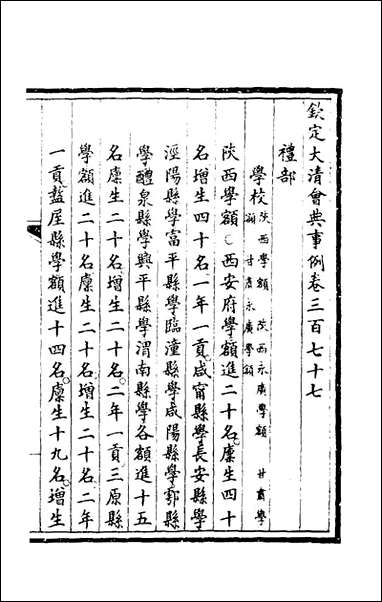 欽定大清會典事例卷三百七十七
禮部
學校 陝西學額 陝西永廣學額 甘肅學
額 甘肅永廣學額
陝西學額○西安府學額進二十名廩生四十
名增生四十名一年一貢咸甯縣學長安縣學
涇陽縣學富平縣學臨潼縣學咸陽縣學鄠縣
學醴泉縣學興平縣學渭南縣學各額進十五
名廩生二十名增生二十名二年一貢三原縣
學額進二十名廩生二十名增生二十名二年
一貢盩厔縣學額進十四名廩生十九名增生